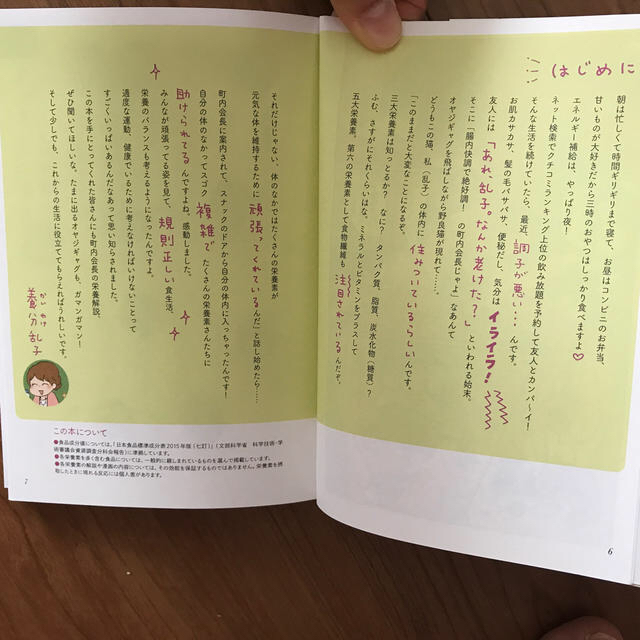 はじめに
朝は忙しくて時間ギリギリまで寝て、お昼はコンビニのお弁当、
甘いものが大好きだから三時のおやつはしっかり食べますよ♡
エネルギー補給は、やっぱり夜！
ネット検索でクチコミランキング上位の飲み放題を予約して友人とカンパ〜イ！
そんな生活を続けていたら、最近、調子が悪い…んです。
お肌カサカサ、髪の毛パサパサ、便秘だし、気分はイライラ！
友人には「あれ、乱子。なんか老けた？」といわれる始末。
そこに「腸内快調で絶好調！の町内会長じゃよ」なあんて
オヤジギャグを飛ばしながら野良猫が現れて……。
どうもこの猫、私（乱子）の体内に住みついているらしいんです。
「このままだと大変なことになるぞ。
三大栄養素は知っとるか？なに？タンパク質、脂質、炭水化物（糖質）？
ふむ、さすがにそれくらいはな。ミネラルとビタミンをプラスして
五大栄養素。第六の栄養素として食物繊維も注目されているんだぞ。
6
それだけじゃない、体のなかではたくさんの栄養素が
元気な体を維持するために頑張ってくれているんだ」と話し始めたら……
町内会長に案内されて、スナックのドアから自分の体内に入っちゃったんです！
自分の体のなかってスゴク複雑でたくさんの栄養素さんたちに
助けられてるんですよね。感動しました。
みんなが頑張ってる姿を見て、規則正しい食生活、
栄養のバランスも考えるようになったんですよ。
適度な運動、健康でいるために考えなければいけないことって
すごくいっぱいあるんだなあって思い知らされました。
この本を手にとってくれた皆さんにも町内会長の栄養解説、
ぜひ聞いてほしいな。たまに出るオヤジギャグも、ガマンガマン！
そして少しでも、これからの生活に役立ててもらえればうれしいです。
かいわけ
養分乱子
この本について
●食品成分値については、「日本食品標準成分表2015年版（七訂）」（文部科学省 科学技術・学
術審議会資源調査分科会報告）に準拠しています。
●各栄養素を多く含む食品については、一般的に親しまれているものを選んで掲載しています。
●各栄養素の解説や漫画の内容については、その効能を保証するものではありません。栄養素を摂
取したときに現れる反応には個人差があります。
7